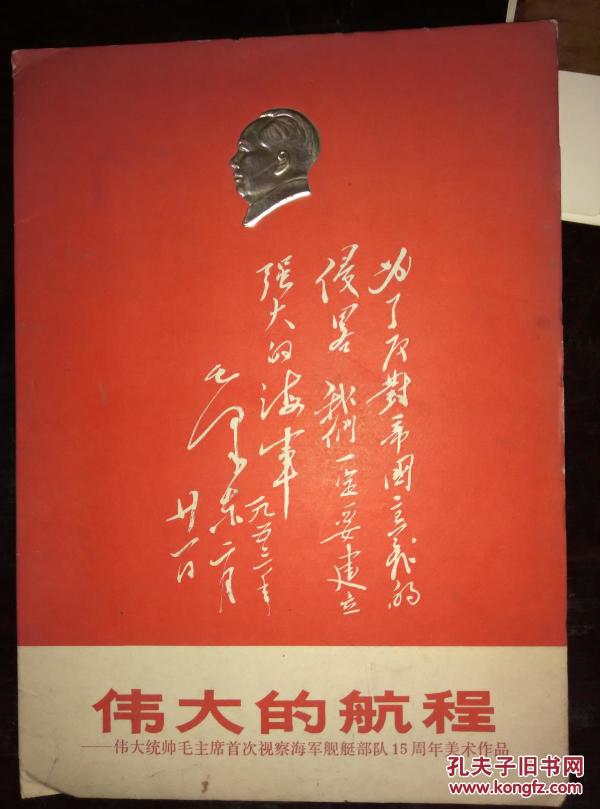 为了反對帝國主義的
侵畧 我們一定要建立
强大的海軍
毛泽东 一九五三年
二月
廿一日
伟大的航程
——伟大统帅毛主席首次视察海军舰艇部队15周年美术作品
孔夫子旧书网
www.kongfz.com